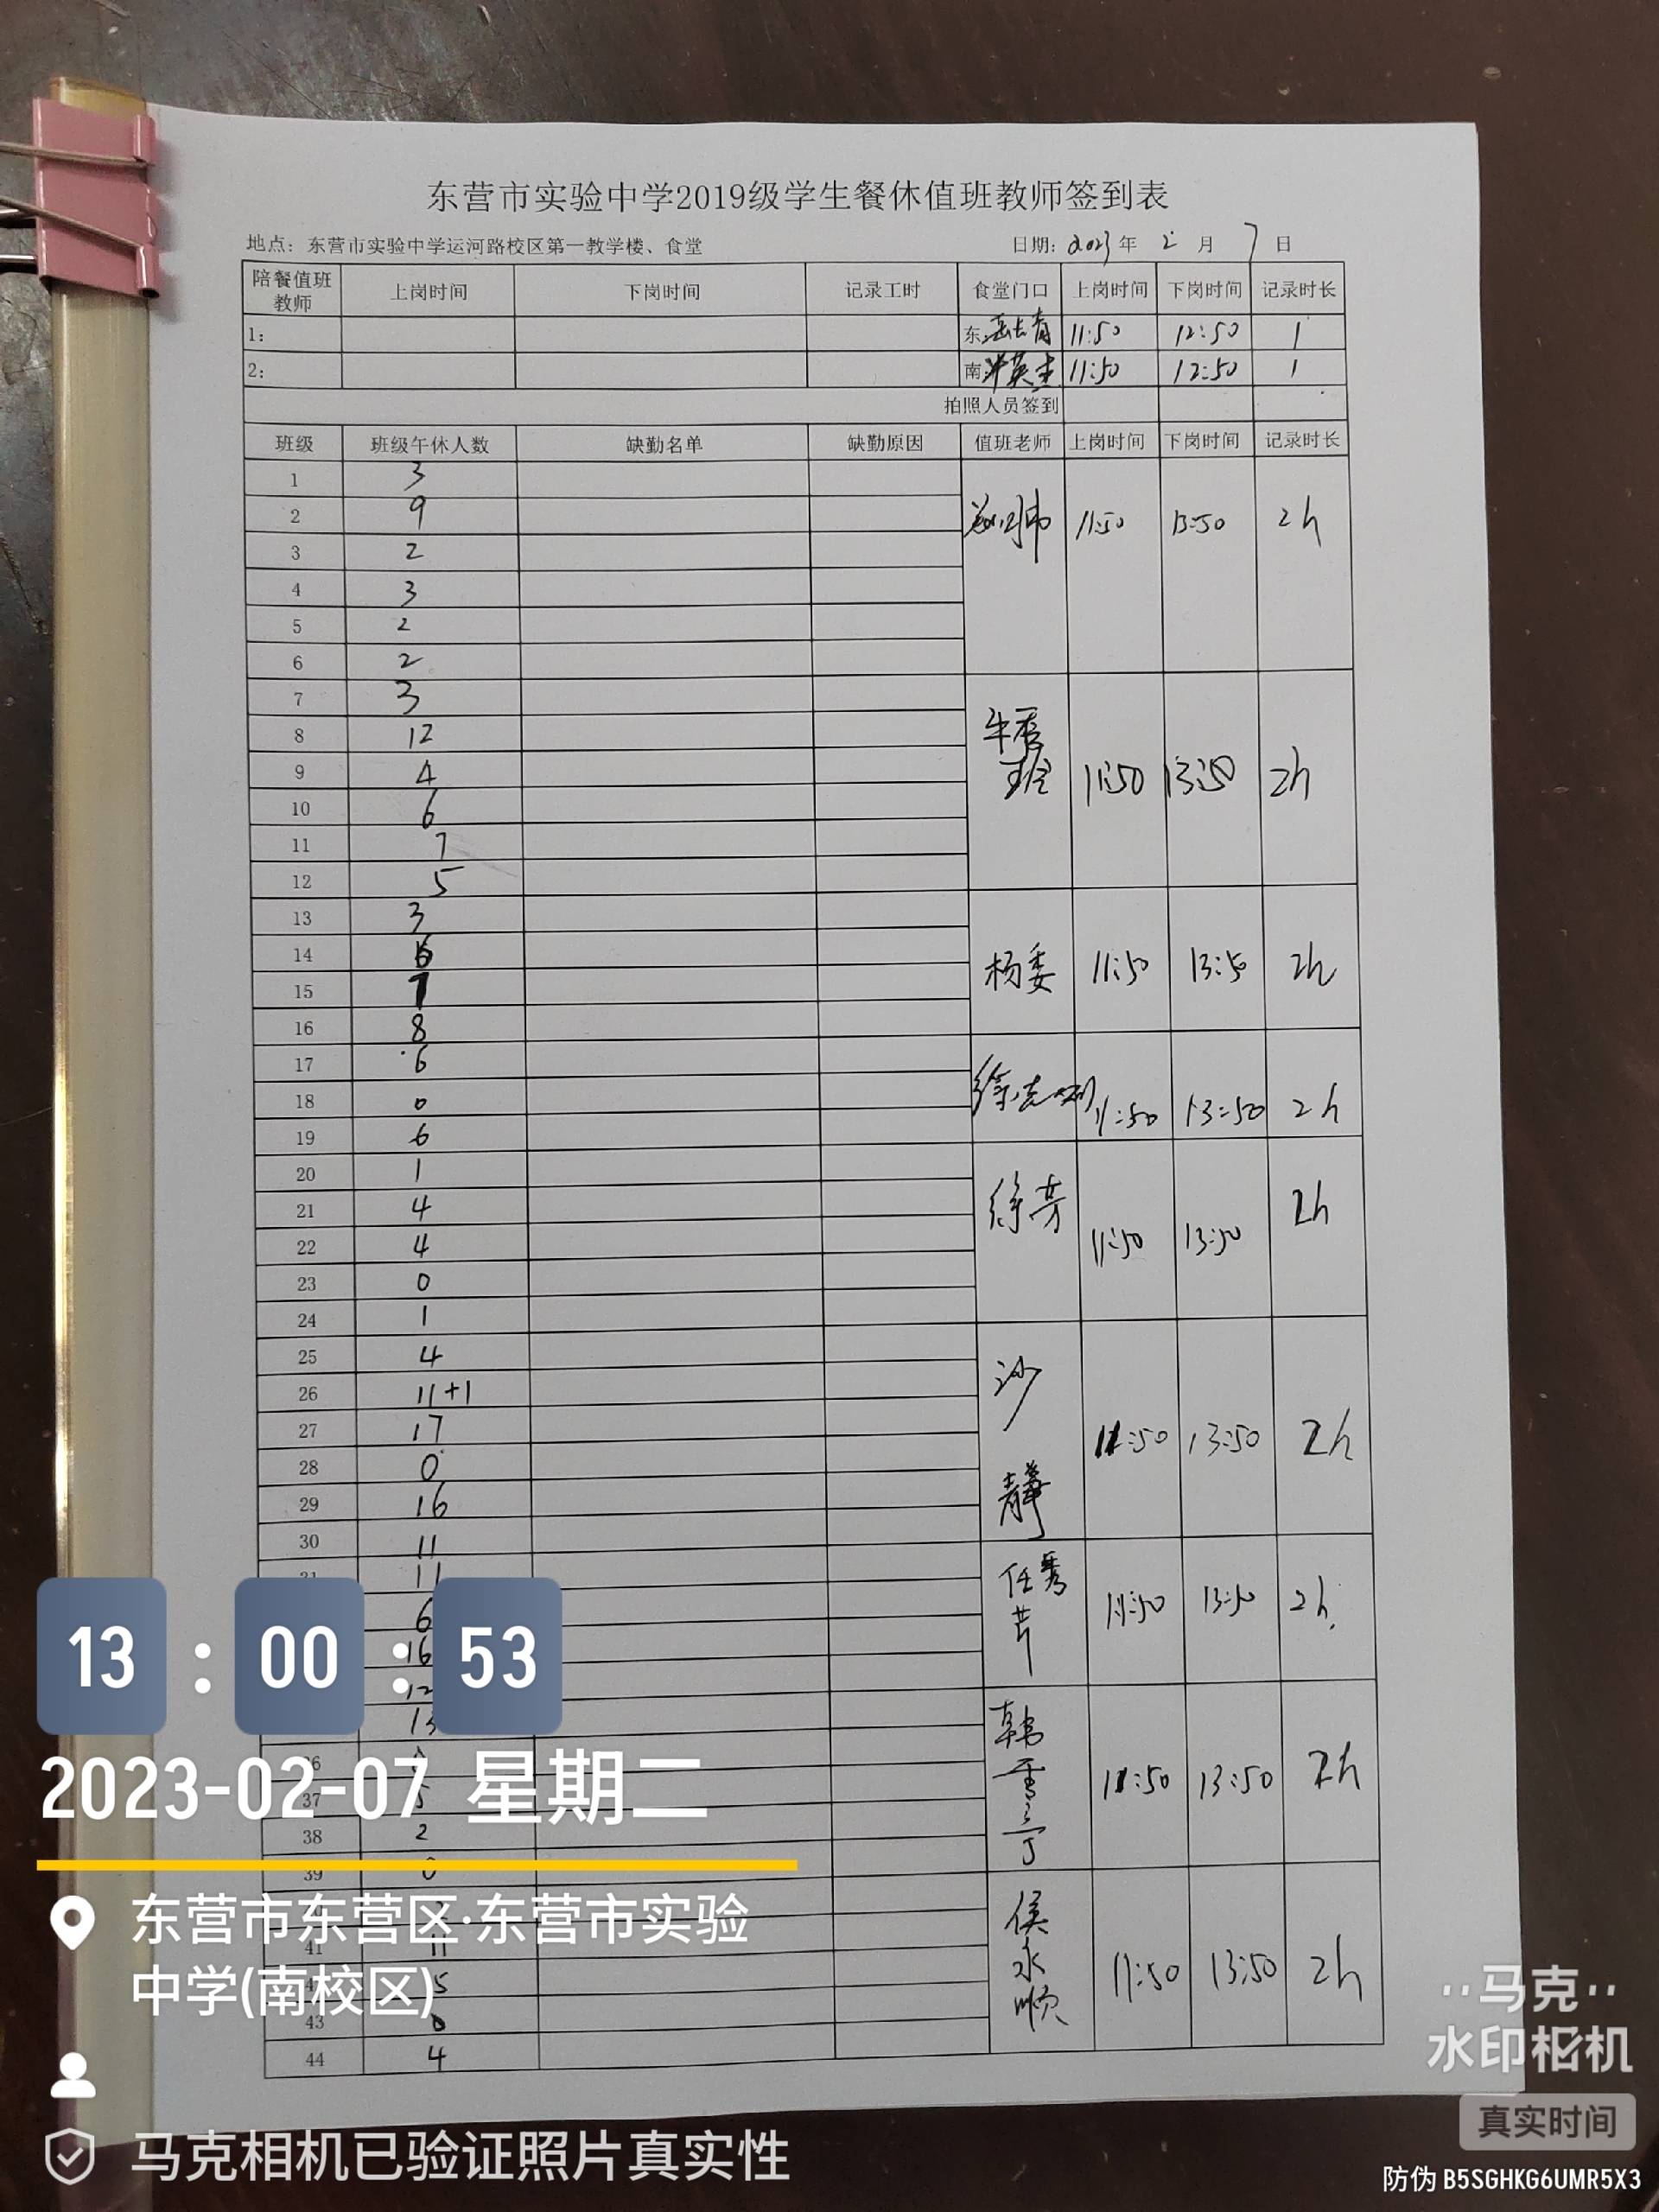 东营市实验中学2019级学生餐休值班教师签到表
地点：东营市实验中学运河路校区第一教学楼、食堂 日期：2023年2月7日
陪餐值班教师 上岗时间 下岗时间 记录工时 食堂门口 上岗时间 下岗时间 记录时长
1： 东 11:50 12:50 1
2： 南 11:50 12:50 1
拍照人员签到
班级 班级午休人数 缺勤名单 缺勤原因 值班老师 上岗时间 下岗时间 记录时长
1 3
2 9 11:50 13:50 2h
3 2
4 3
5 2
6 2
7 3
8 12
9 4 11:50 13:50 2h
10 6
11 7
12 5
13 3
14 6 杨委 11:50 13:50 2h
15 7
16 8
17 6
18 0 11:50 13:50 2h
19 6
20 1
21 4 徐芳 11:50 13:50 2h
22 4
23 0
24 1
25 4
26 11+1
27 17 沙静 11:50 13:50 2h
28 0
29 16
30 11
31 11
6 任秀芹 11:50 13:50 2h
16
12
13
36
37 5 韩雪亭 11:50 13:50 2h
38 2
39 0
41 11 侯永顺 11:50 13:50 2h
5
43 0
44 4
13:00:53
2023-02-07 星期二
东营市东营区·东营市实验
中学(南校区)
马克相机已验证照片真实性
马克
水印相机
真实时间
防伪 B5SGHKG6UMR5X3